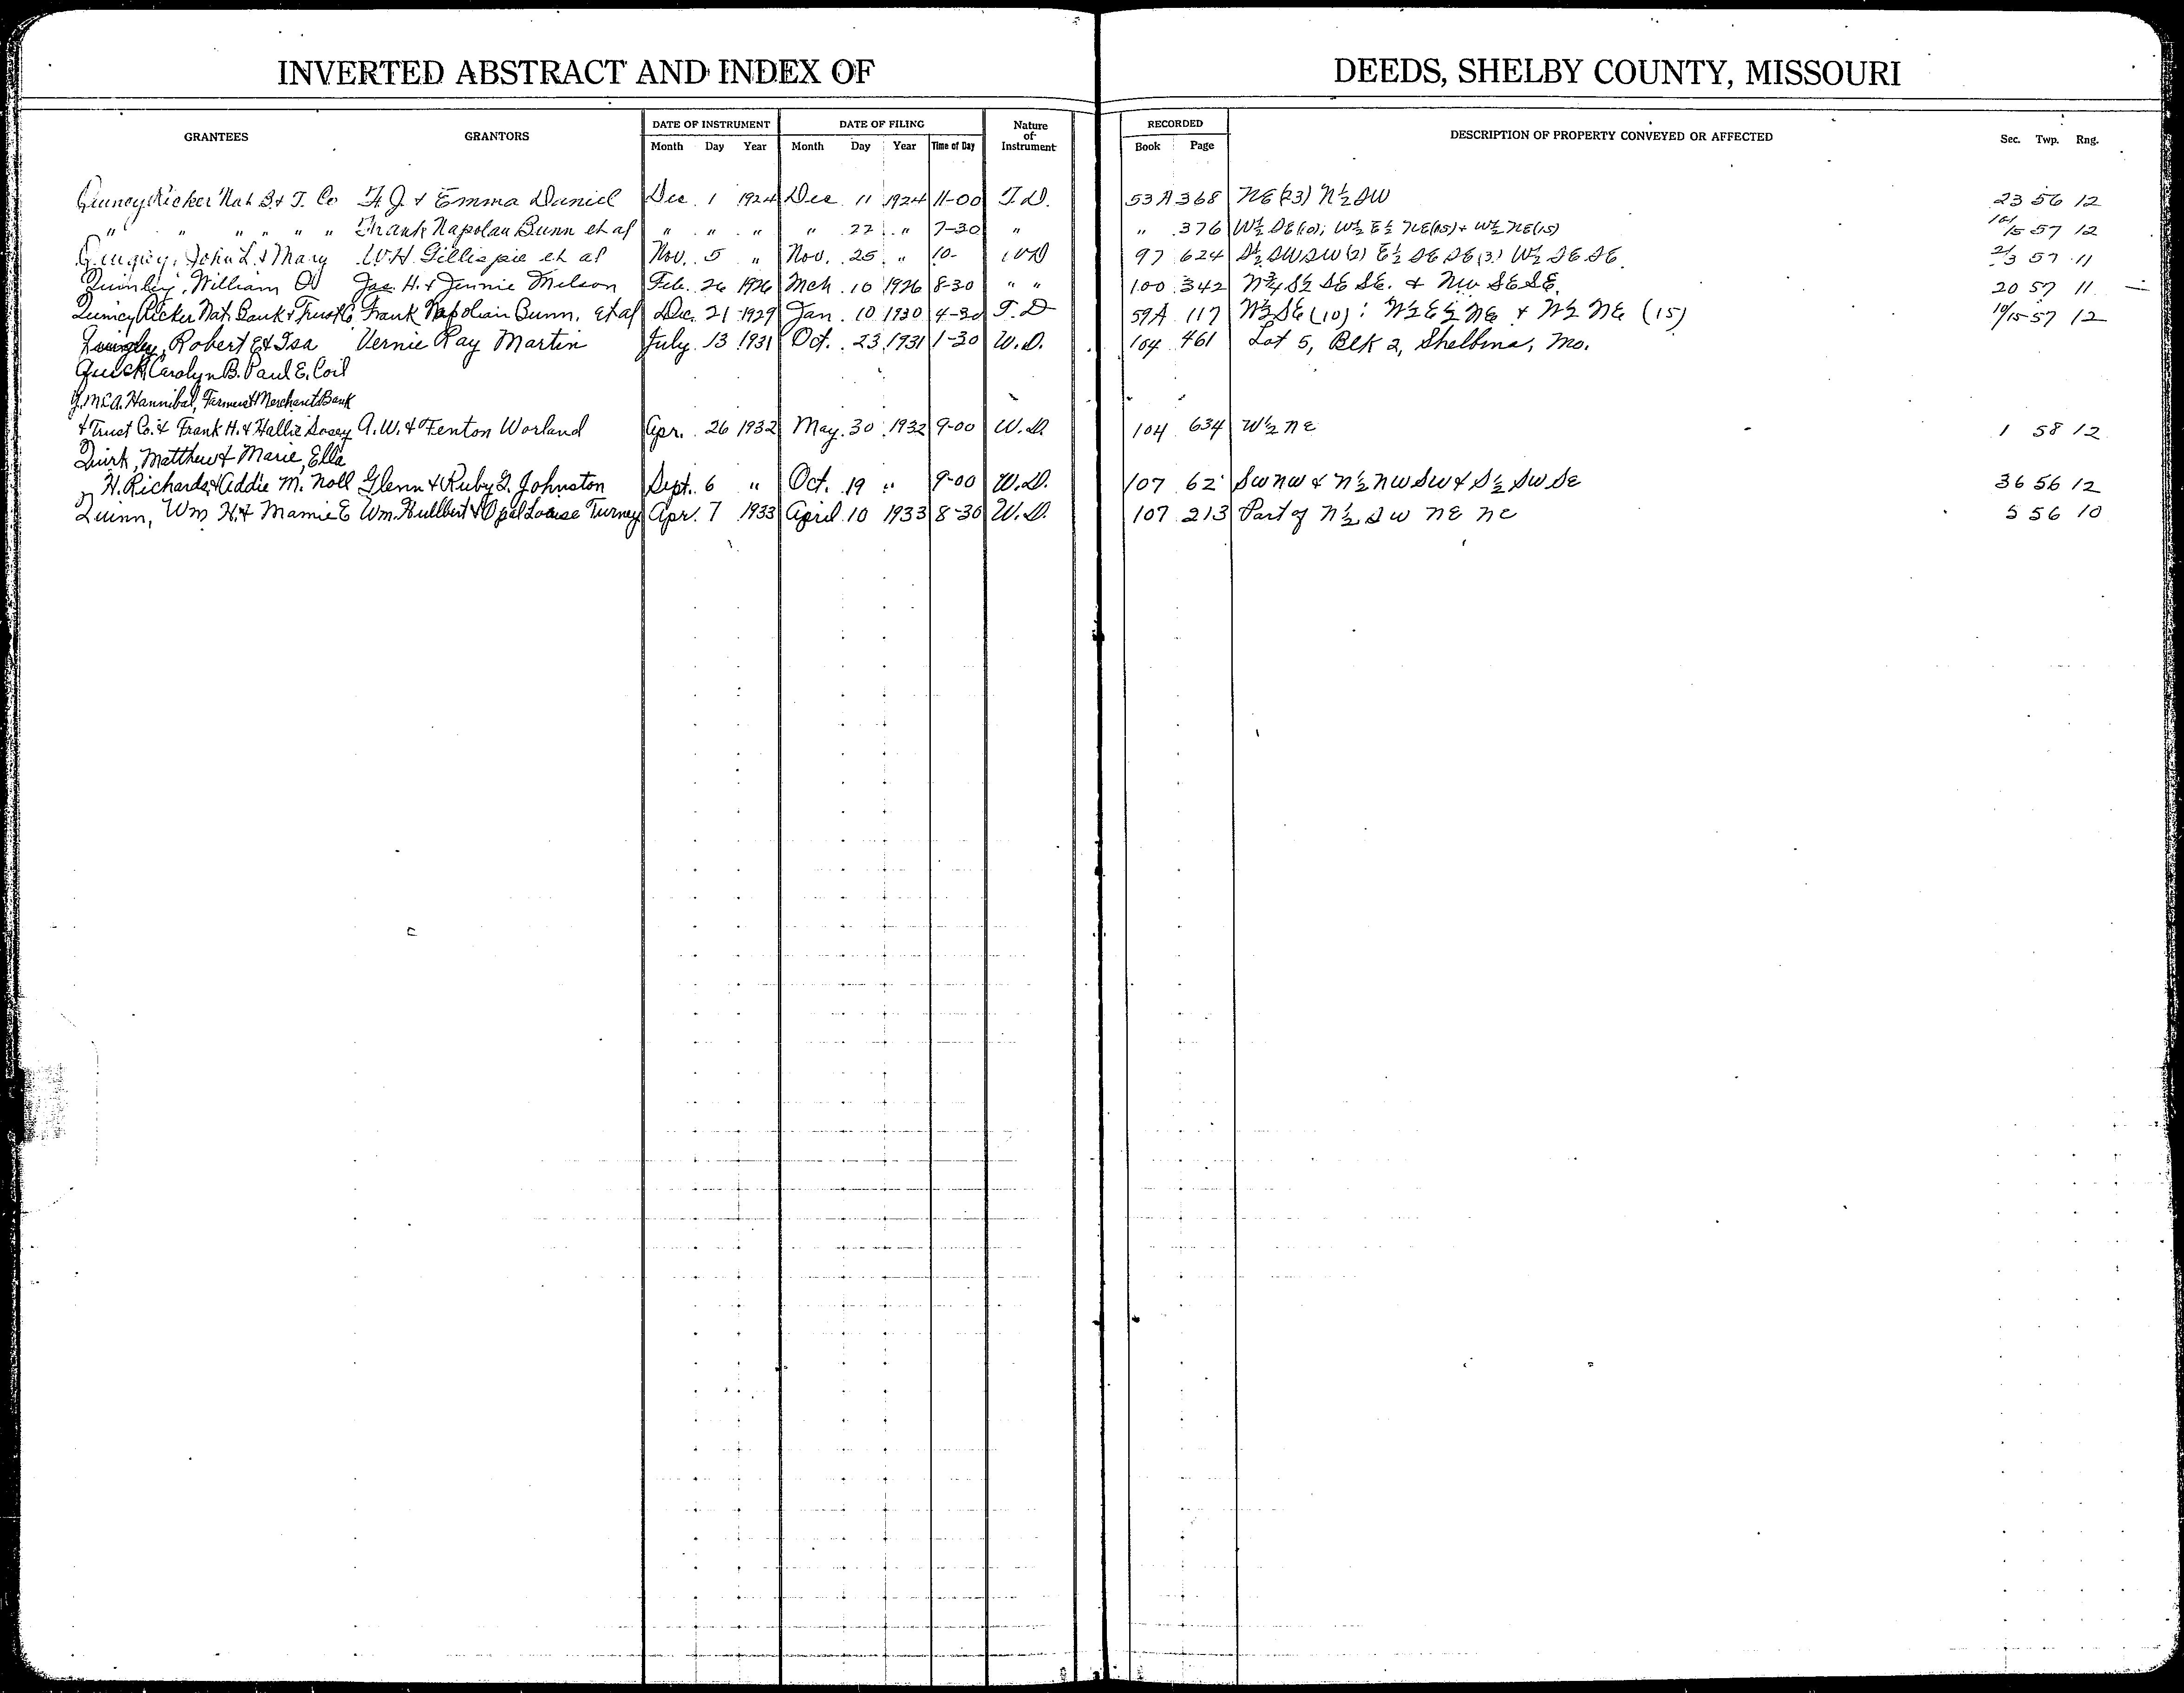 INVERTED ABSTRACT AND INDEX OF DEEDS, SHELBY COUNTY, MISSOURI
GRANTEES GRANTORS DATE OF INSTRUMENT DATE OF FILING Nature of Instrument RECORDED DESCRIPTION OF PROPERTY CONVEYED OR AFFECTED Sec. Twp. Rng.
Month Day Year Month Day Year Time of Day Book Page
Quincy Ricker Nat B. & T. Co F. J. & Emma Daniel Dec. 1 1924 Dec 11 1924 11-00 T.D. 53A 368 NE (23) N½ SW 23 56 12
" " " " " " Frank Napolan Bunn et al " " " " 22 " 7-30 " " 376 W½ SE(10); W½ E½ NE(15) + W½ NE(15) 10/15 57 12
John L. & Mary W.H. Gillispie et al Nov. 5 " Nov. 25 " 10- WD 97 624 S½ SW SW (2) E½ SE SE (3) W½ SE SE. 2/3 57 11
William O Jas. H. & Jennie Melson Feb. 26 1926 Mch. 10 1926 8-30 " " 100 342 N¾ S½ SE SE. & NW SE SE. 20 57 11
Quincy Ricker Nat. Bank & Trust Co Frank Napolian Bunn, et al Dec. 21 1929 Jan. 10 1930 4-30 T.D 59A 117 W½ SE (10): W½ E½ NE & W½ NE (15) 10/15 57 12
Quigley, Robert E & Isa Vernie Ray Martin July 13 1931 Oct. 23 1931 1-30 W.D. 104 461 Lot 5, Blk 2, Shelbina, Mo.
Quick, Carolyn B. Paul E. Coil
Y.M.C.A. Hannibal, Farmers & Merchants Bank
& Trust Co. & Frank H. & Hallie Sosey A. W. & Fenton Worland Apr. 26 1932 May 30 1932 9-00 W.D. 104 634 W½ NE 1 58 12
Quirk, Matthew & Marie, Ella
H. Richards & Addie M. Noll Glenn & Ruby G. Johnston Sept. 6 " Oct. 19 " 9-00 W.D. 107 62 SW NW & N½ NW SW & S½ SW SE 36 56 12
Quinn, Wm H. & Mamie E Wm. Hullbert & Opal Louise Turney Apr. 7 1933 April 10 1933 8-30 W.D. 107 213 Part of N½ SW NE NE 5 56 10